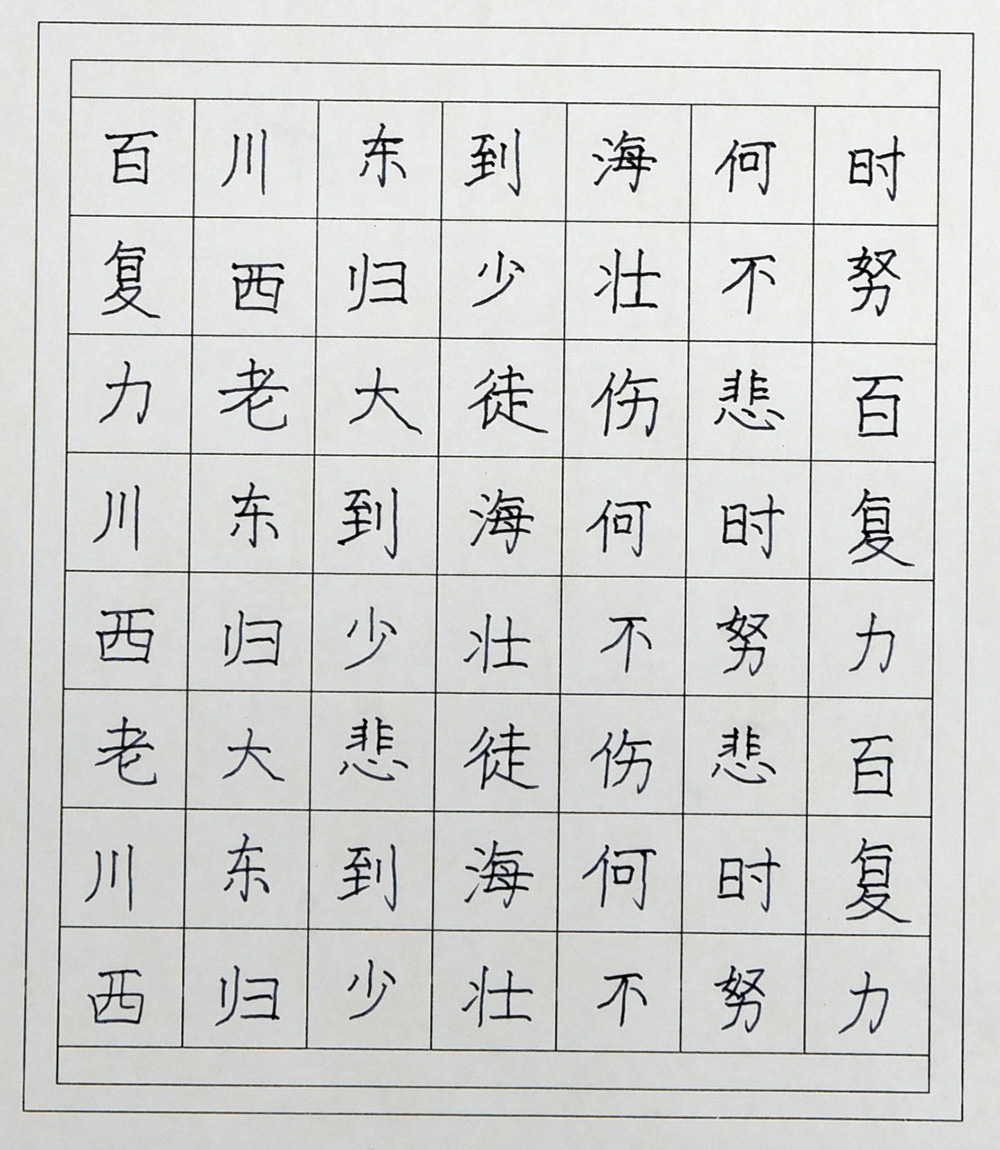 百川东到海何时
复西归少壮不努
力老大徒伤悲百
川东到海何时复
西归少壮不努力
老大悲徒伤悲百
川东到海何时复
西归少壮不努力